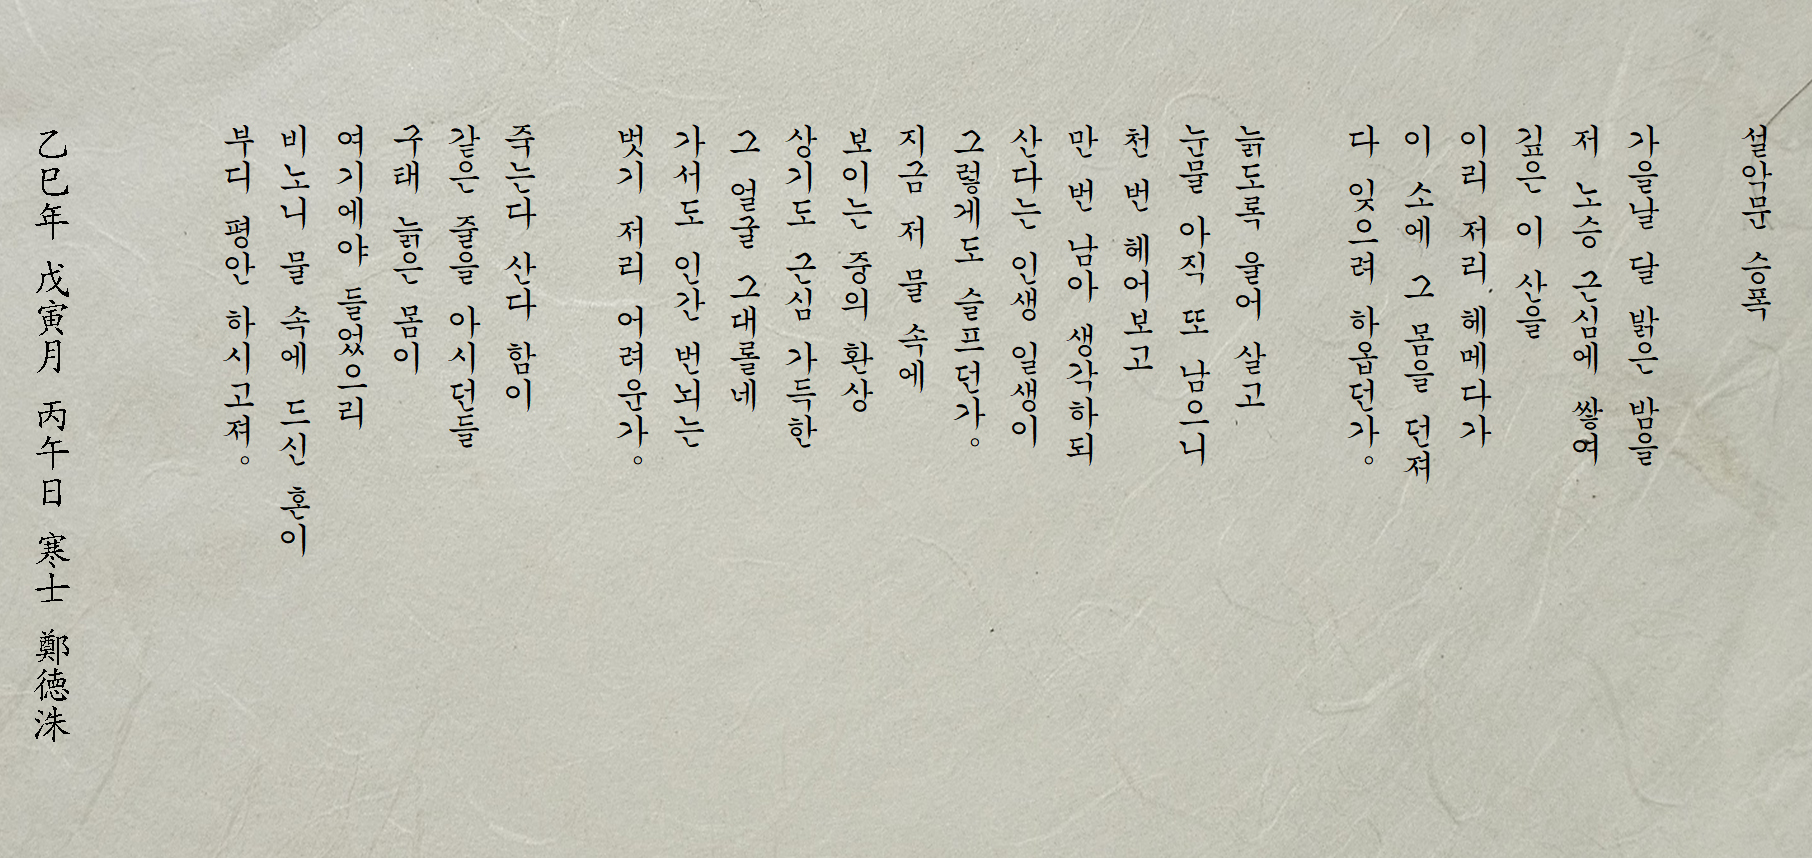 설악문 승폭
가을날 달 밝은 밤을
저 노승 근심에 쌓여
깊은 이 산을
이리 저리 헤메다가
이 소에 그 몸을 던져
다 잊으려 하옵던가。
늙도록 울어 살고
눈물 아직 또 남으니
천 번 헤어보고
만 번 남아 생각하되
산다는 인생 일생이
그렇게도 슬프던가。
지금 저 물 속에
보이는 중의 환상
상기도 근심 가득한
그 얼굴 그대롤네
가서도 인간 번뇌는
벗기 저리 어려운가。
죽는다 산다 함이
같은 줄을 아시던들
구태 늙은 몸이
여기에야 들었으리
비노니 물 속에 드신 혼이
부디 평안 하시고져。
乙巳年 戊寅月 丙午日 寒士 鄭德洙